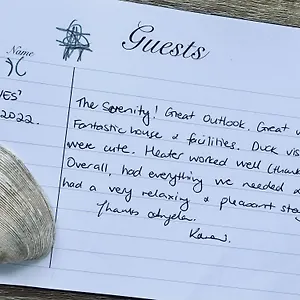 Guests
Name
The Serenity! Great Outlook. Great
2022.
Fantastic house & facilities. Duck
were cute. Heater worked well (thank
Overall, had everything we needed
had a very relaxing & pleasant stay
Thanks Angela.
Karen.